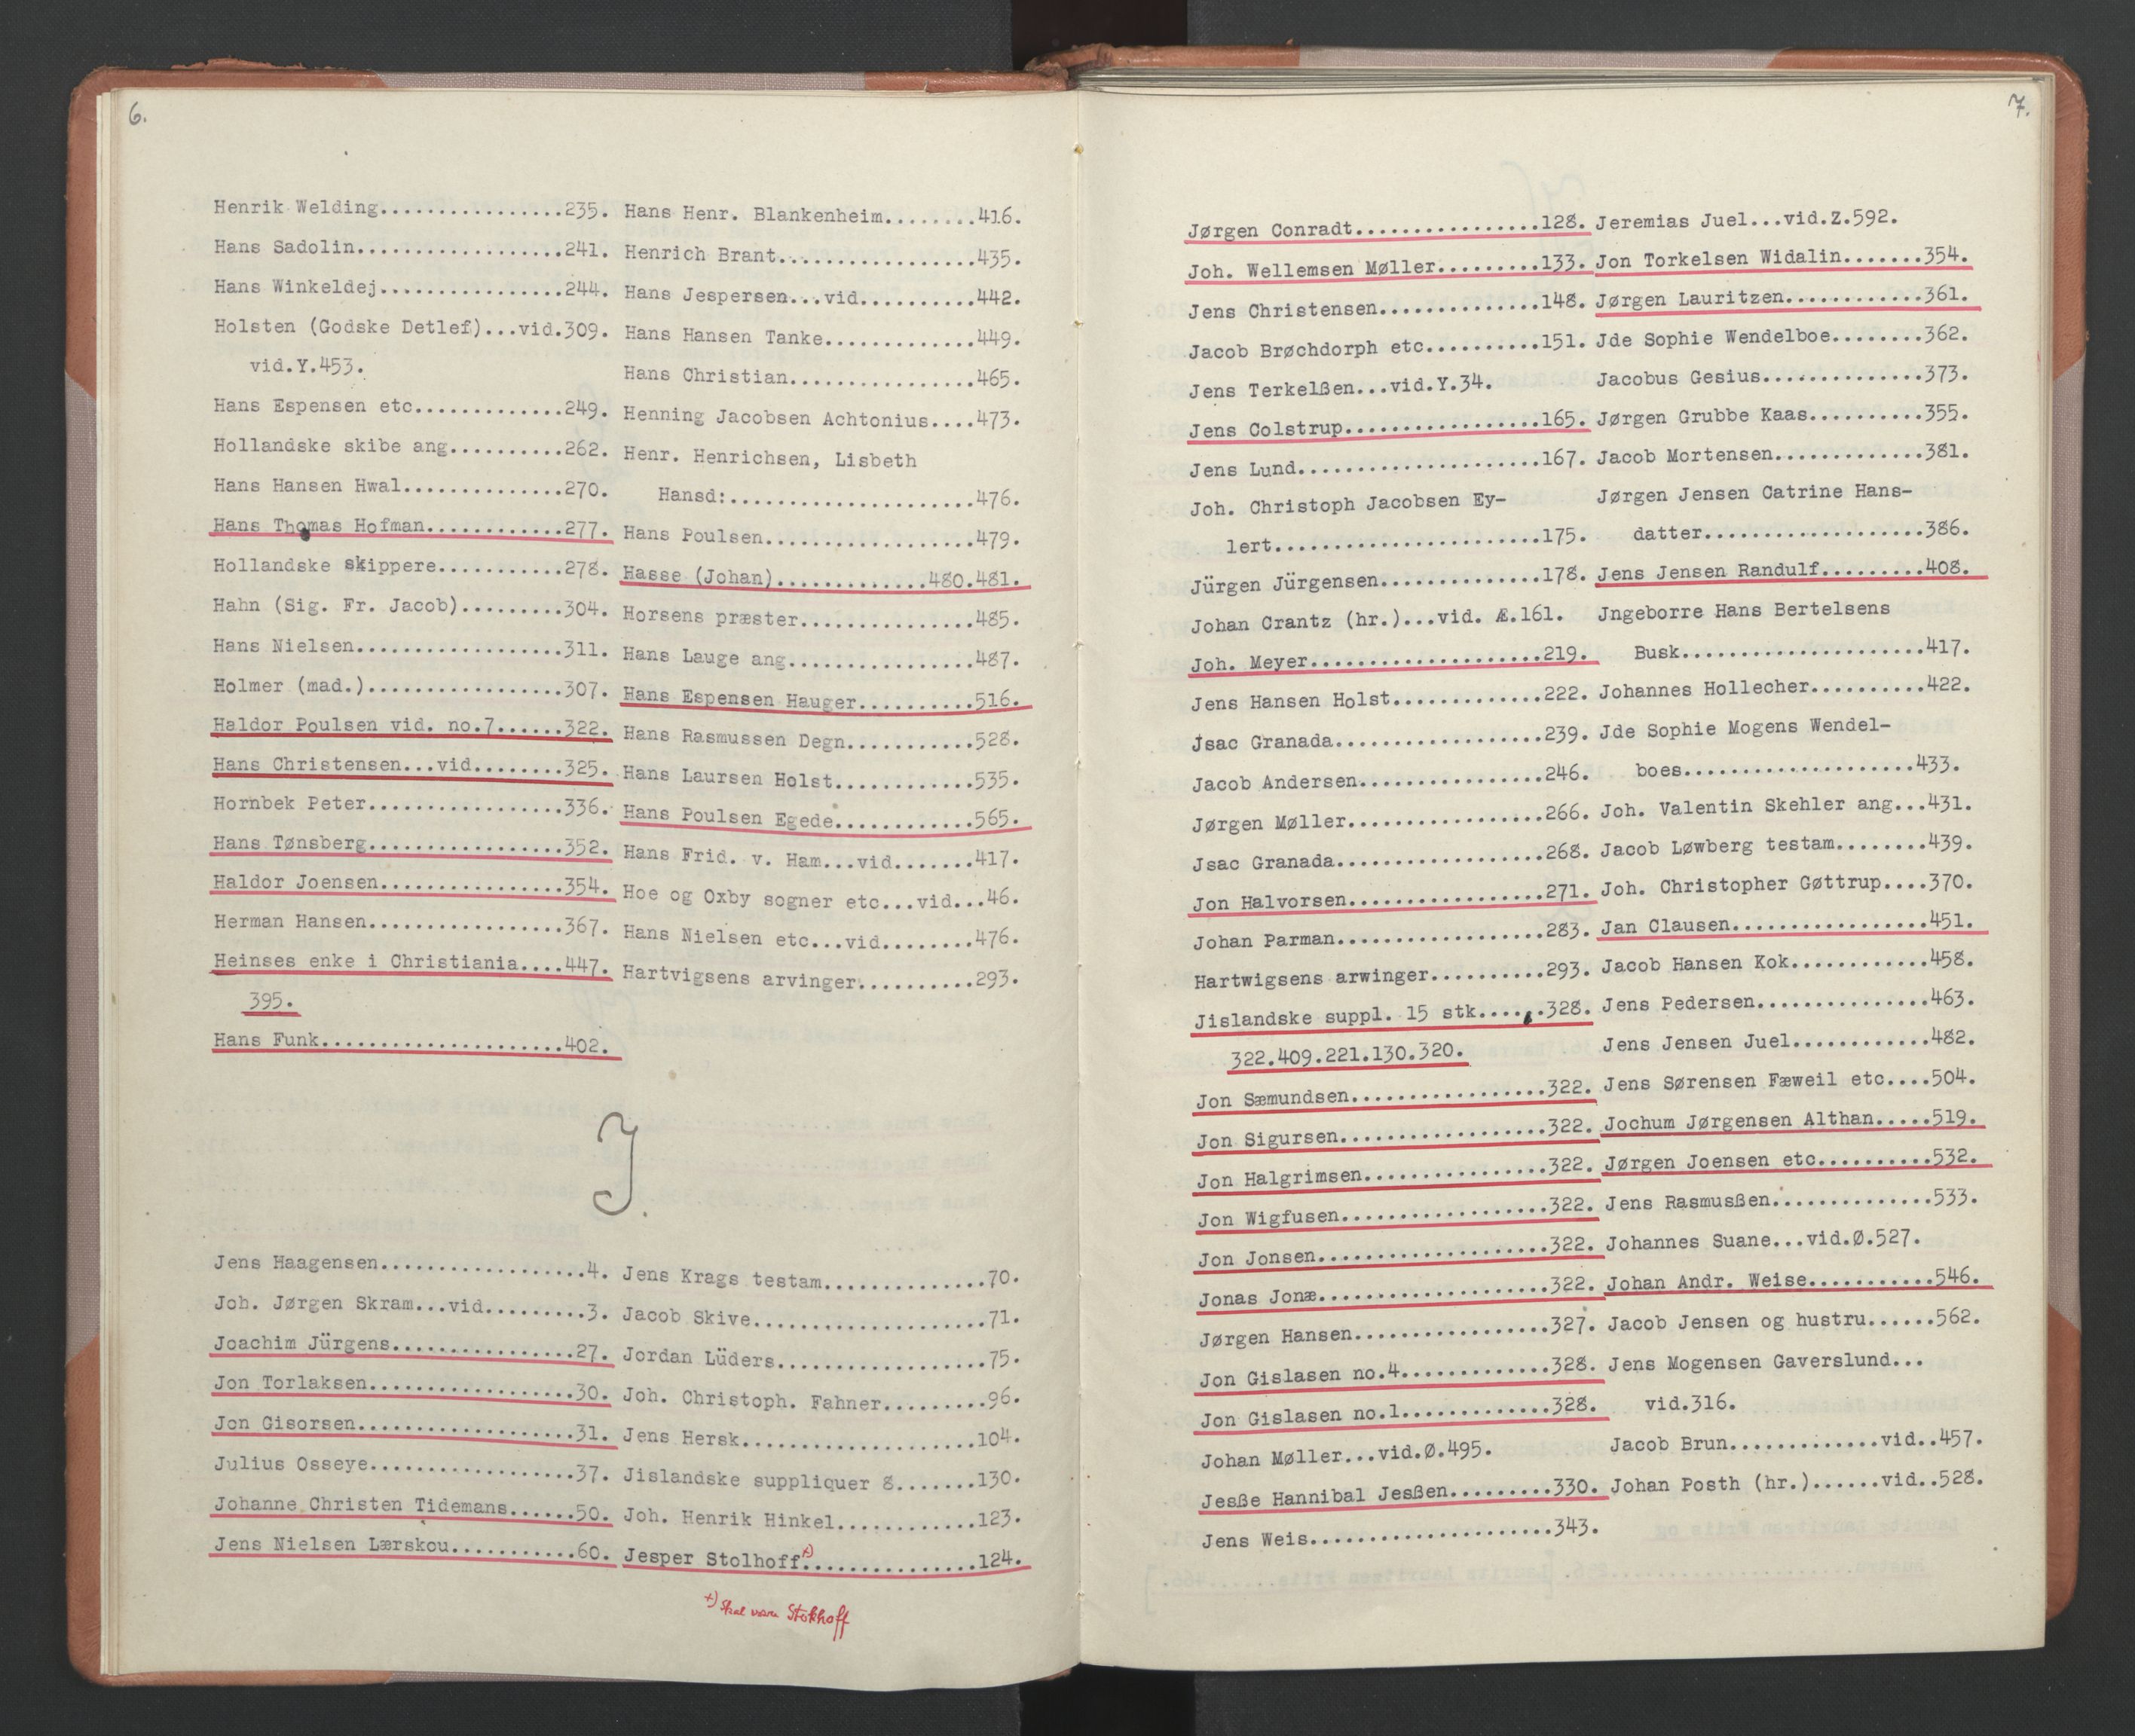 6.
Henrik Welding................235.
Hans Sadolin..................241.
Hans Winkeldej................244.
Holsten (Godske Detlef)...vid.309.
vid.Y.453.
Hans Espensen etc.............249.
Hollandske skibe ang..........262.
Hans Hansen Hwal..............270.
Hans Thomas Hofman............277.
Hollandske skippere...........278.
Hahn (Sig. Fr. Jacob).........304.
Hans Nielsen..................311.
Holmer (mad.).................307.
Haldor Poulsen vid. no.7......322.
Hans Christensen...vid........325.
Hornbek Peter.................336.
Hans Tønsberg.................352.
Haldor Joensen................354.
Herman Hansen.................367.
Heinses enke i Christiania....447.
395.
Hans Funk.....................402.
Hans Henr. Blankenheim........416.
Henrich Brant.................435.
Hans Jespersen...vid..........442.
Hans Hansen Tanke.............449.
Hans Christian................465.
Henning Jacobsen Achtonius....473.
Henr. Henrichsen, Lisbeth
Hansd:......................476.
Hans Poulsen..................479.
Hasse (Johan).............480.481.
Horsens præster...............485.
Hans Lauge ang................487.
Hans Espensen Hauger..........516.
Hans Rasmussen Degn...........528.
Hans Laursen Holst............535.
Hans Poulsen Egede............565.
Hans Frid. v. Ham...vid.......417.
Hoe og Oxby sogner etc...vid...46.
Hans Nielsen etc...vid........476.
Hartvigsens arvinger..........293.
J.
Jens Haagensen..................4.
Joh. Jørgen Skram...vid.........3.
Joachim Jürgens................27.
Jon Torlaksen..................30.
Jon Gisorsen...................31.
Julius Osseye..................37.
Johanne Christen Tidemans......50.
Jens Nielsen Lærskou...........60.
Jens Krags testam..............70.
Jacob Skive....................71.
Jordan Lüders..................75.
Joh. Christoph. Fahner.........96.
Jens Hersk....................104.
Jislandske suppliquer 8.......130.
Joh. Henrik Hinkel............123.
Jesper Stolhoff+)...............124.
+) Skal være Stokhoff
7.
Jørgen Conradt................128.
Joh. Wellemsen Møller.........133.
Jens Christensen..............148.
Jacob Brøchdorph etc..........151.
Jens Terkelßen...vid.Y.34.
Jens Colstrup.................165.
Jens Lund.....................167.
Joh. Christoph Jacobsen Ey-
lert.......................175.
Jürgen Jürgensen..............178.
Johan Crantz (hr.)...vid. Æ.161.
Joh. Meyer....................219.
Jens Hansen Holst.............222.
Jsac Granada..................239.
Jacob Andersen................246.
Jørgen Møller.................266.
Jsac Granada..................268.
Jon Halvorsen.................271.
Johan Parman..................283.
Hartwigsens arwinger..........293.
Jislandske suppl. 15 stk......328.
322.409.221.130.320.
Jon Sæmundsen.................322.
Jon Sigursen..................322.
Jon Halgrimsen................322.
Jon Wigfusen..................322.
Jon Jonsen....................322.
Jonas Jonæ....................322.
Jørgen Hansen.................327.
Jon Gislasen no.4.............328.
Jon Gislasen no.1.............328.
Johan Møller...vid.Ø.495.
Jesße Hannibal Jesßen.........330.
Jens Weis.....................343.
Jeremias Juel...vid.Z.592.
Jon Torkelsen Widalin.......354.
Jørgen Lauritzen............361.
Jde Sophie Wendelboe........362.
Jacobus Gesius..............373.
Jørgen Grubbe Kaas..........355.
Jacob Mortensen.............381.
Jørgen Jensen Catrine Hans-
datter...................386.
Jens Jensen Randulf.........408.
Jngeborre Hans Bertelsens
Busk.....................417.
Johannes Hollecher..........422.
Jde Sophie Mogens Wendel-
boes....................433.
Joh. Valentin Skehler ang...431.
Jacob Løwberg testam........439.
Joh. Christopher Gøttrup....370.
Jan Clausen.................451.
Jacob Hansen Kok............458.
Jens Pedersen...............463.
Jens Jensen Juel............482.
Jens Sørensen Fæweil etc....504.
Jochum Jørgensen Althan.....519.
Jørgen Joensen etc..........532.
Jens Rasmusßen..............533.
Johannes Suane...vid.Ø.527.
Johan Andr. Weise...........546.
Jacob Jensen og hustru......562.
Jens Mogensen Gaverslund...
vid.316.
Jacob Brun.............vid..457.
Johan Posth (hr.)......vid..528.